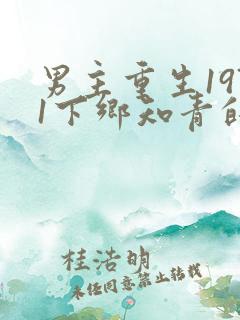 男主重生19
1下乡知青的
桂浩明
未经同意禁止转载